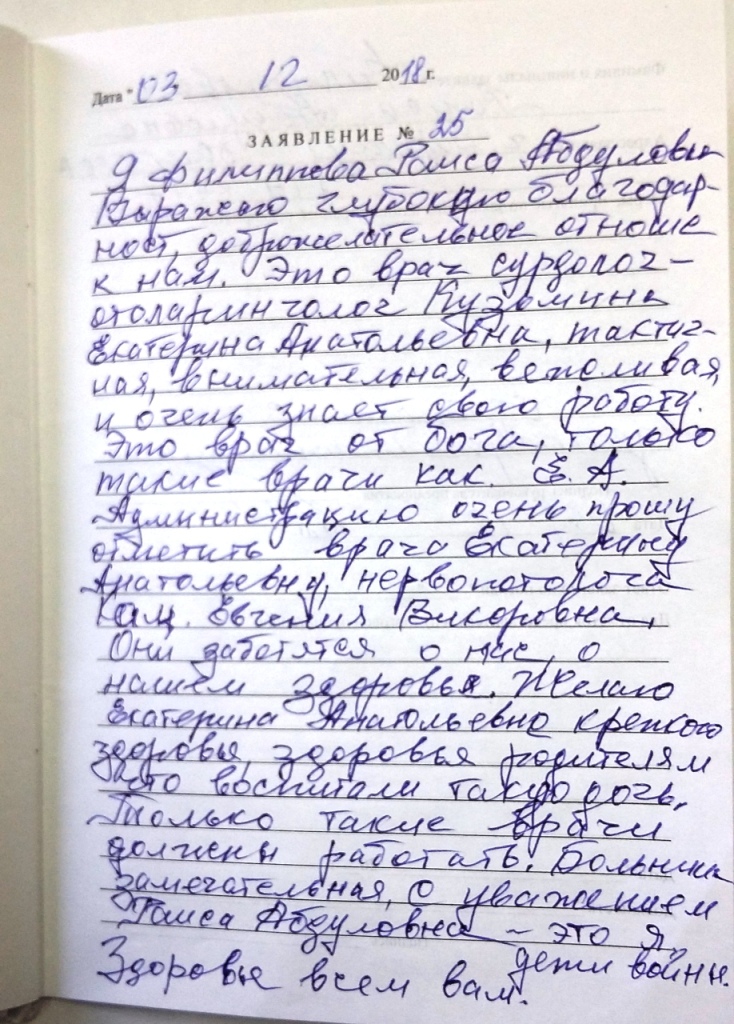 Дата "03 12 2018 г.
ЗАЯВЛЕНИЕ № 25
Я Филиппова Раиса Абдуловна
Выражаю глубокую благодар-
ност, доброжелательное отноше
к нам. Это врач сурдолог-
отоларинголог Кузьмина
Екатерина Анатольевна, тактич-
ная, внимательная, вежливая,
и очень знает свою работу.
Это врач от бога, только
такие врачи как Е. А.
Администрацию очень прошу
отметить врача Екатерину
Анатольевну,
Евгения Викоровна,
Они заботятся о нас, о
нашем здоровья. Желаю
Екатерина Анатольевна крепкого
здоровья, здоровья родителям
что воспитали такую дочь.
Только такие врачи
должны работать. Больница
замечательная, С уважением
Раиса Абдуловна – это я
дети войны.
Здоровье всем вам.